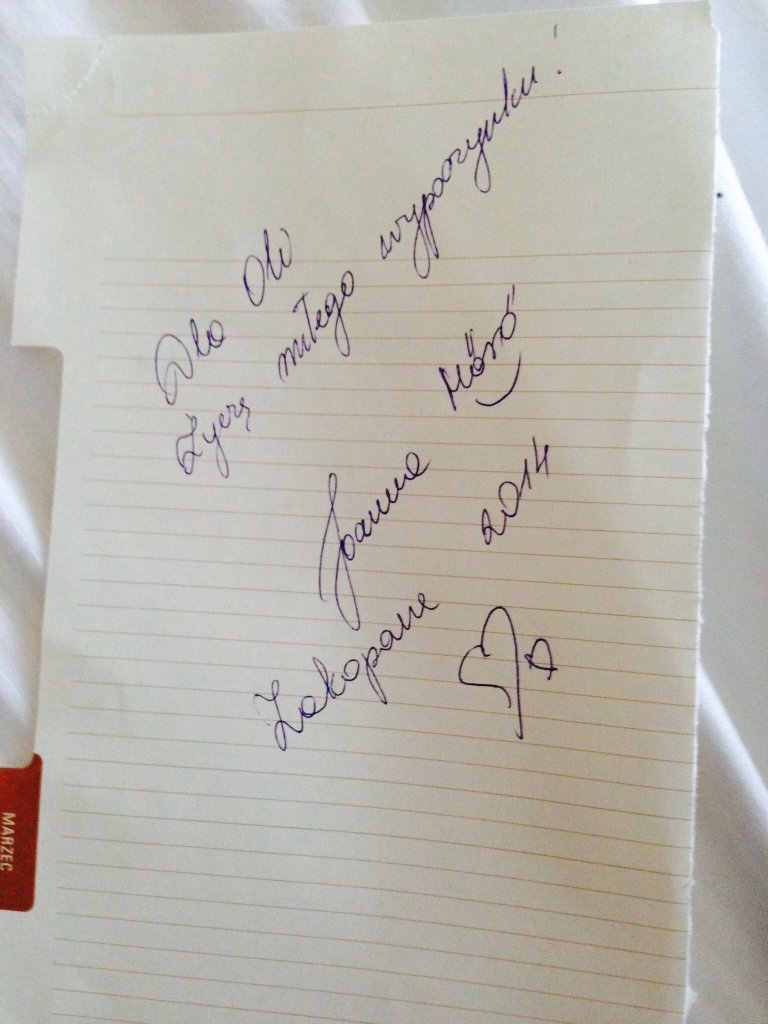 Dla Oli
Życzę miłego wypoczynku!
Joanna
Zakopane 2014
MARZEC